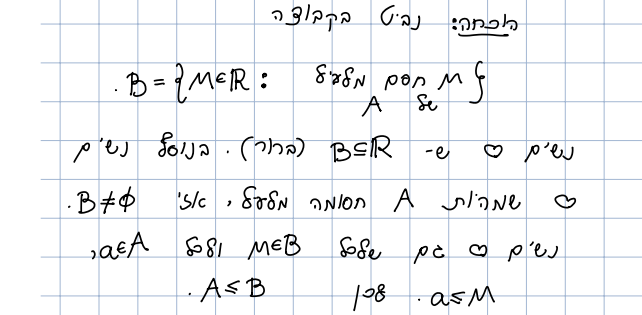 הוכחה: נביט בקבוצה
B = {M∈ℝ : M חסם מלעיל של A}.
נשים ♡ ש- B⊆ℝ (ברור). בנוסף נשים
♡ שמהיות A חסומה מלעיל, אזי B≠∅.
נשים ♡ גם שלכל M∈B ולכל a∈A,
a≤M. לכן A≤B.